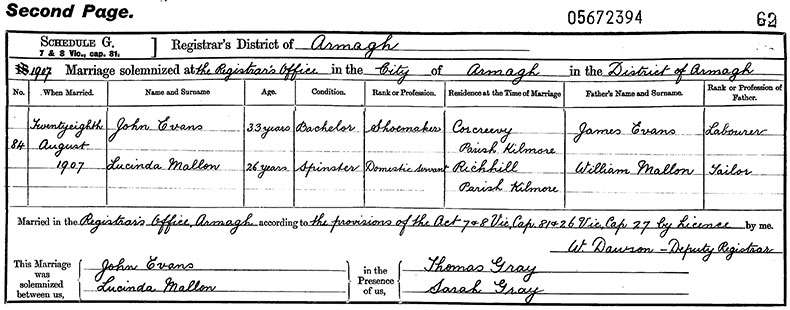 Second Page.
05672394
62
SCHEDULE G.
7 & 8 Vic., cap. 81.
Registrar's District of Armagh
1907 Marriage solemnized at the Registrar's Office in the City of Armagh in the District of Armagh
No. When Married. Name and Surname Age. Condition. Rank or Profession. Residence at the Time of Marriage Father's Name and Surname. Rank or Profession of Father.
Twentyeighth John Evans 33 years Bachelor Shoemaker Corcreevy James Evans Labourer
84 August Parish Kilmore
1907 Lucinda Mallon 26 years Spinster Domestic servant Richhill William Mallon Tailor
Parish Kilmore
Married in the Registrar's Office, Armagh according to the provisions of the Act 7 & 8 Vic, Cap. 81 & 26 Vic, Cap 27 by Licence by me.
W. Dawson - Deputy Registrar
This Marriage was solemnized between us,
John Evans
Lucinda Mallon
in the Presence of us,
Thomas Gray
Sarah Gray